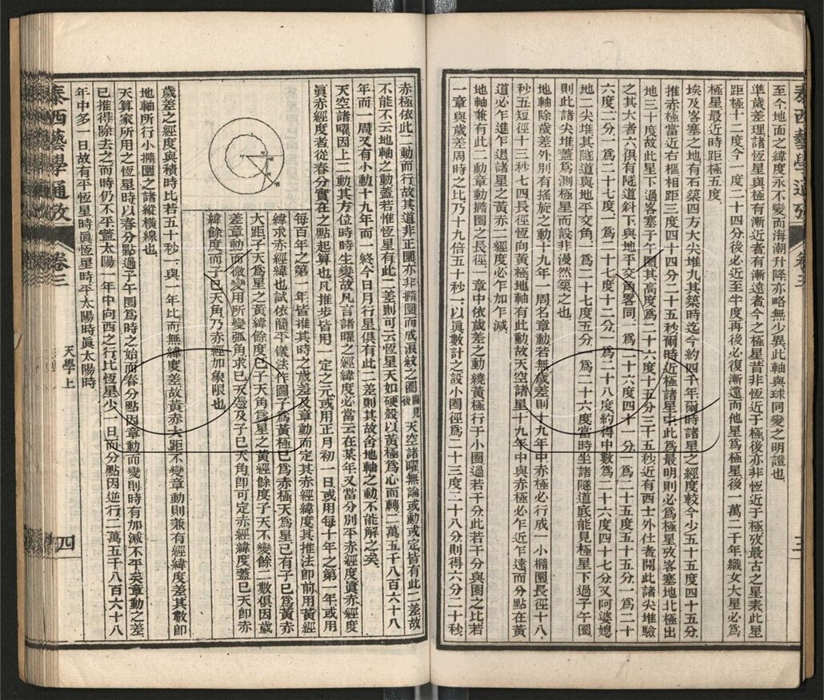 泰西藝學通攷
卷三
三
至今地面之緯度永不變而海潮升降亦略無少異此軸與球同變之明證也
準歲差理諸恆星與極有漸近者有漸遠者今之極星昔非恆近于極後亦非恆近于極攷最古之星表此星
距極十二度今一度二十四分後必近至半度再後必復漸遠而他星爲極星後一萬二千年織女大星必爲
極星最近時距極五度
埃及客塞之地有石築四方大尖堆九其築時迄今約四千年爾時諸星之經度較今少五十五度四十五分
推赤極當近右樞相距三度四十四分二十五秒爾時近極諸星中此爲最明則必爲極星攷客塞地北極出
地三十度故此星下過客塞子午圈其高度爲二十六度十五分三十五秒近有西士外仕者開此諸尖堆驗
之其大者六俱有隧道斜下與地平交角畧同一爲二十六度四十一分一爲二十五度五十五分一爲二十
六度二分一爲二十七度一爲二十七度十二分一爲二十八度約得中數爲二十六度四十七分又阿婆媳
地二尖堆其隧道與地平交角一爲二十七度五分一爲二十六度當時坐諸隧道底能見極星下過子午圈
則此諸尖堆蓋爲測極星而設非漫然築之也
地軸除歲差外別有搖旋之動十九年一周名章動若無歲差則十九年中赤極必行成一小橢圜長徑十八
秒五短徑十三秒七四長徑恆向黃極地軸有此動故天空諸星十九年中與赤極必乍近乍遠而分點在黃
道必乍進乍退諸星之黃赤二經度必乍加乍減
地軸兼有此二動章動橢圜之長徑一章中依歲差之動繞黃極行于小圈過若干分此若干分與圈之比若
一章與歲差周時之比乃十九倍五十秒一以眞數計之設小圈徑爲二十三度二十八分則得六分二十秒
赤極依此二動而行故其道非正圜亦非橢圜而成浪紋之圈圖見後天空諸曜無論或動或定皆有此二差故
不能不云地軸之動蓋若惟恆星有此二差則可云恆星天如硬殼以黃極爲心而轉二萬五千八百六十八
年而一周又有小動十九年而一終今日月行星俱有此二差則其故舍地軸之動不能解之矣
天空諸曜因上二動其方位時時生變故凡言諸曜之經緯度必當云在某年又當分別平赤經度眞赤經度
眞赤經度者從春分實在之點起算也凡推步皆用一定之元或用正月初一日或用每十年之第一年或用
每百年之第一年皆推其時之歲差及章動而定其赤經緯度其推法即前用黃經
緯求赤經緯也試依簡平儀法作圖子爲黃極巳爲赤極天爲星巳有子巳爲黃赤
大距子天爲星之黃緯餘度巳子天角爲星之黃經餘度子天不變餘二數俱因歲
差章動而微變用所變弧角求巳天邊及子巳天角即可定赤經緯度蓋巳天即赤
緯餘度而子巳天角乃赤經加象限也
歲差之經度與積時比若五十秒一與一年比而無緯度差故黃赤大距不變章動則兼有經緯度差其數即
地軸所行小橢圜之諸縱橫線也
天算家所用之恆星時以春分點過子午圈爲時之始而春分點因章動而變則時有加減不平矣章動之差
已推得除去之而時仍不平蓋太陽一年中向西之行比恆星少一日而分點因逆行二萬五千八百六十八
年中多一日故有平恆星時眞恆星時平太陽時眞太陽時
泰西藝學通攷
卷三
天學上
四